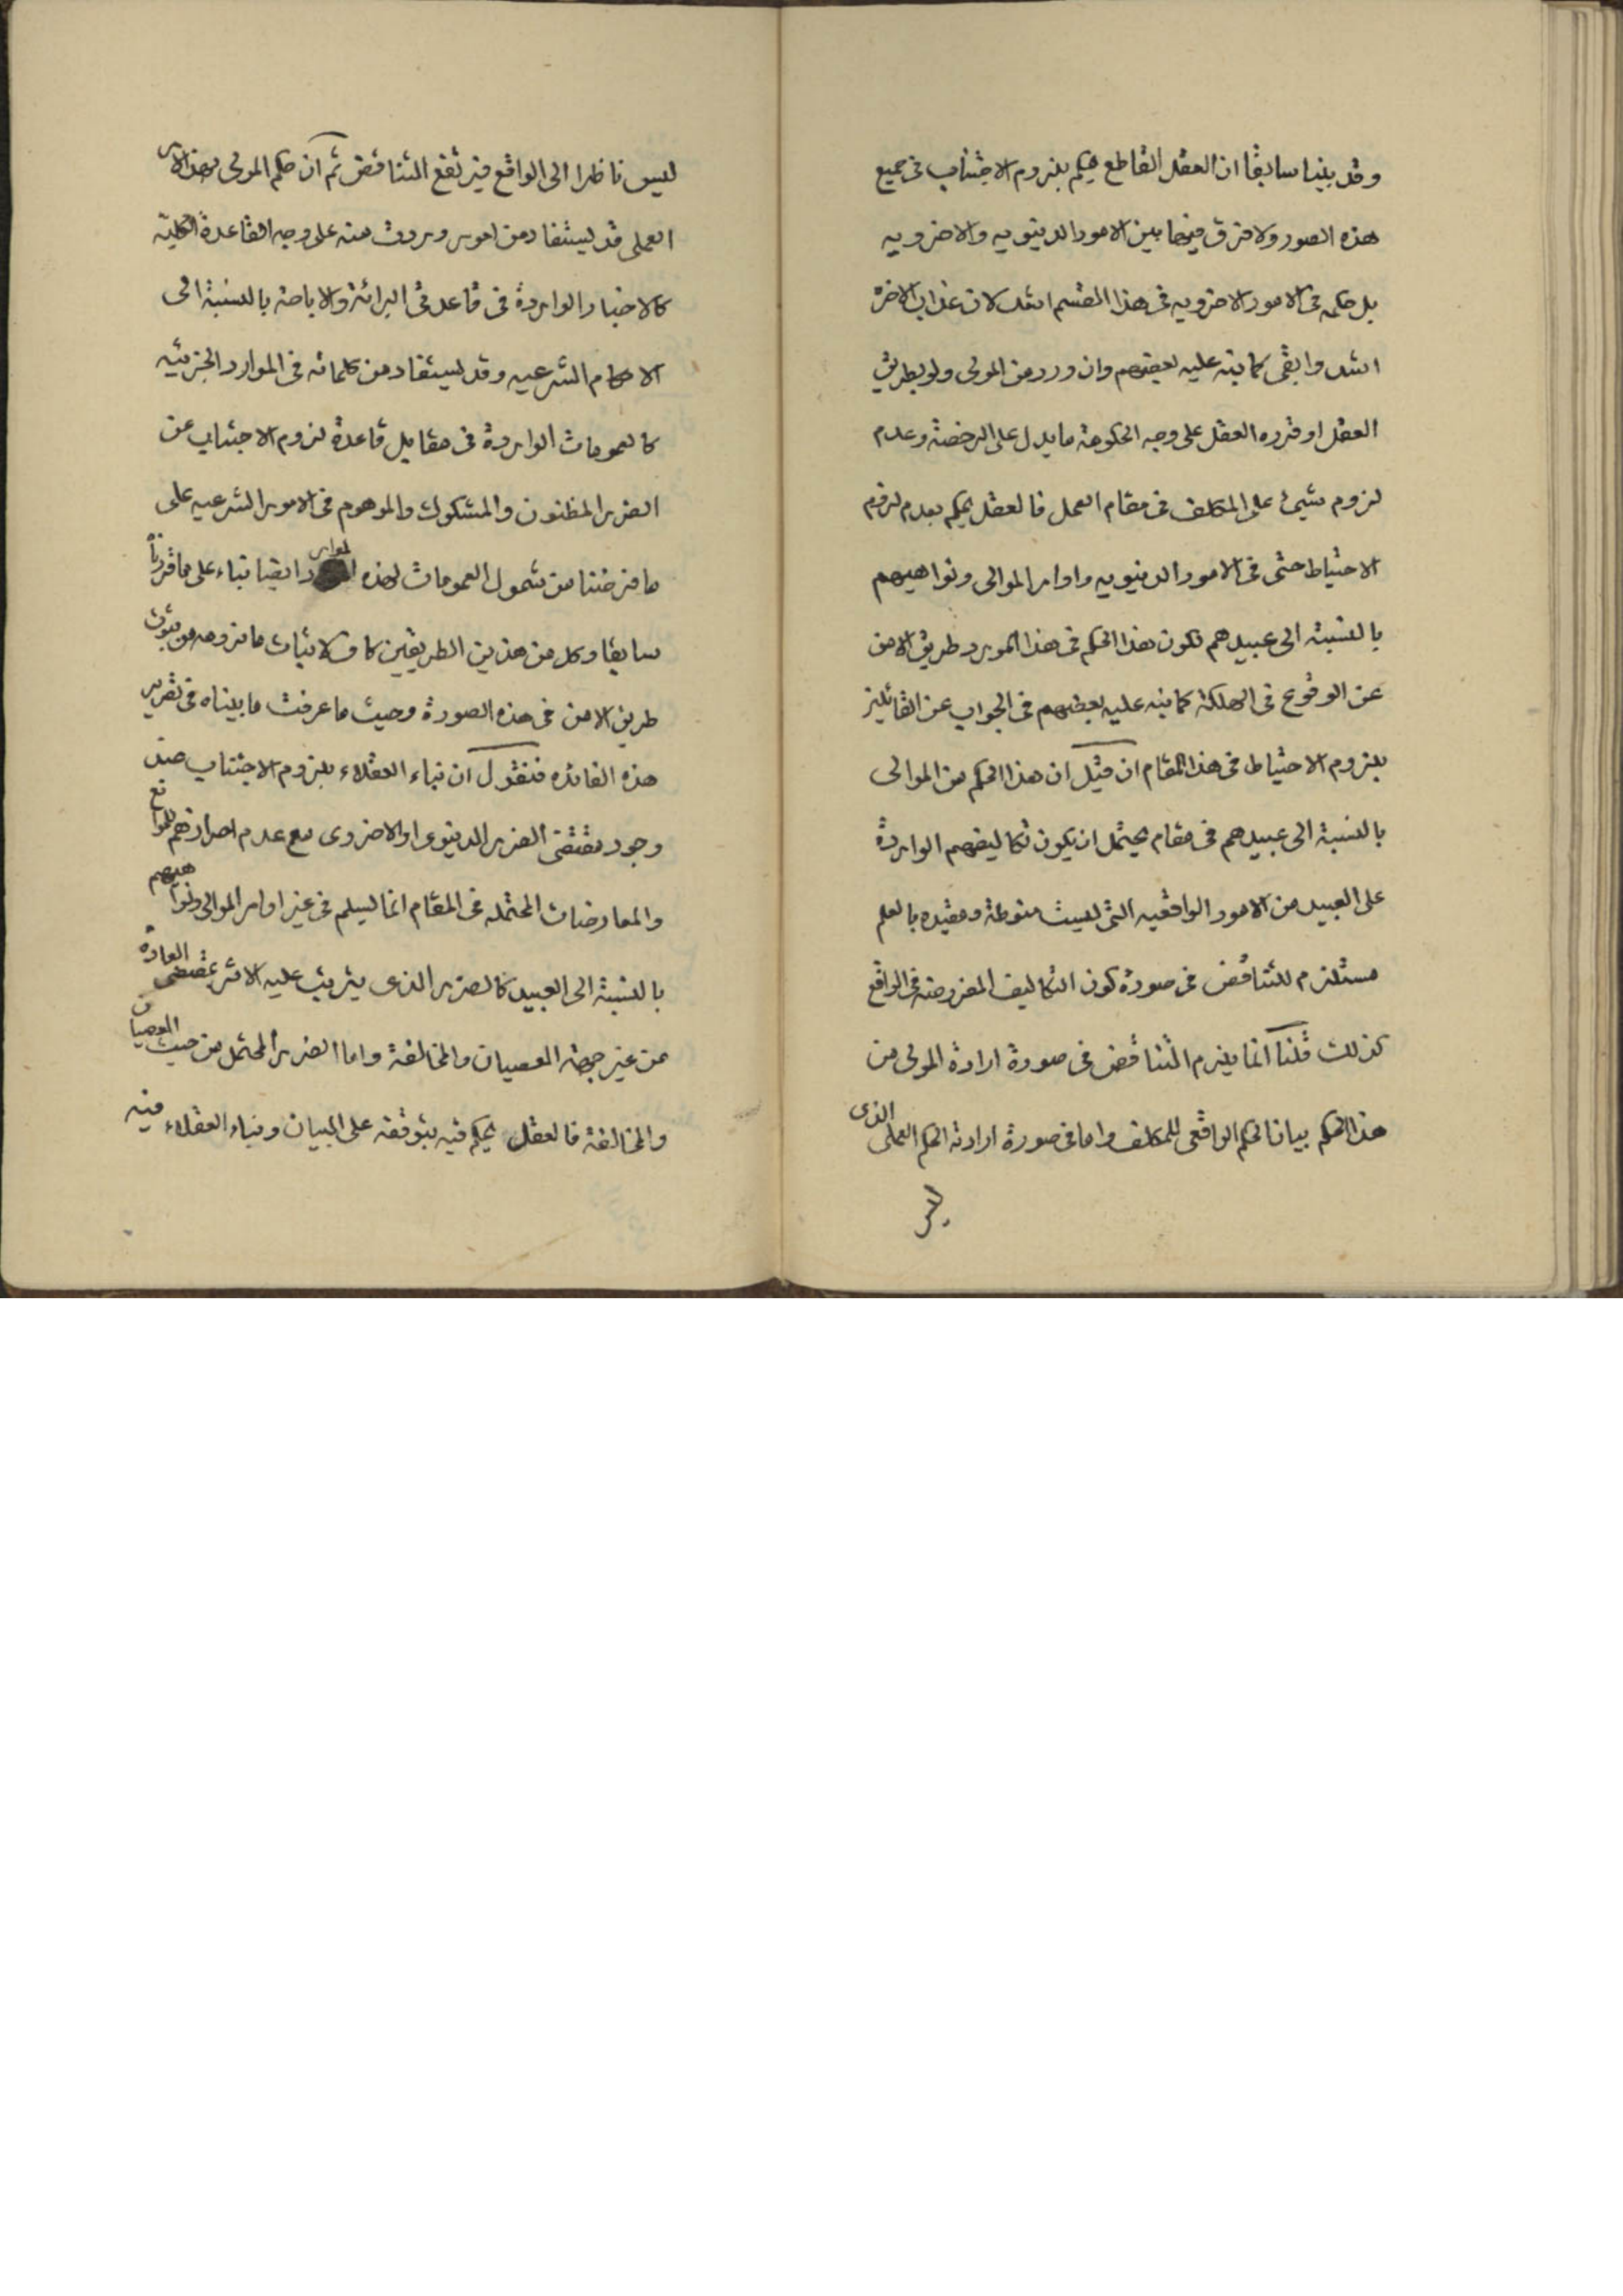 وقد بينا سابقا ان العقل القاطع يحكم بلزوم الاجتناب فى جميع
هذه الصور ولا فرق فيها بين الامور الدينويه والاخرويه
بل حكمه فى الامور الاخرويه فى هذا القسم اشد لان عذاب الاخرة
اشد وابقى كما نبه عليه بعضهم وان ورد من المولى ولو بطريق
العقل او قرره العقل على وجه الحكومة ما يدل على الرخصة وعدم
لزوم شيئ على المكلف فى مقام العمل فالعقل يحكم بعدم لزوم
الاحتياط حتى فى الامور الدينويه واوامر الموالى ونواهيهم
بالنسبة الى عبيدهم فكون هذا الحكم فى هذا المورد طريق الامن
عن الوقوع فى الهلكة كما نبه عليه بعضهم فى الجواب عن القائلين
بلزوم الاحتياط فى هذا المقام ان قيل ان هذا الحكم من الموالى
بالنسبة الى عبيدهم فى مقام يحتمل ان يكون تكاليفهم الواردة
على العبيد من الامور الواقعيه التى ليست منوطة ومقيده بالعلم
مستلزم للتناقض فى صورة كون التكاليف المفروضه فى الواقع
كذلك قلنا انما يلزم التناقض فى صورة ارادة المولى من
هذا الحكم بيان الحكم الواقعى للمكلف واما فى صورة ارادته الحكم العملى الذى
ليس
ليس ناظرا الى الواقع فيرتفع التناقض ثم ان حكم المولى بهذا الامر
العملى قد يستفاد من امور وردت منه على وجه القاعدة الكلية
كالاخبار الواردة فى قاعدتى البرائة والاباحة بالنسبة الى
الاحكام الشرعيه وقد يستفاد من كلماته فى الموارد الجزئيه
كالعمومات الواردة فى مقابل قاعدة لزوم الاجتناب عن
الضرر المظنون والمشكوك والموهوم فى الامور الشرعيه على
ما فرضنا من شمول العمومات لهذه الموارد ايضا بناء على ما قررنا
سابقا وكل من هذين الطريقين كاف لاثبات ما نرومه من ثبوت
طريق الامن فى هذه الصورة وحيث ما عرفت ما بيناه فى تقرير
هذه الفائده فنقول ان بناء العقلاء بلزوم الاجتناب عند
وجود مقتضى الضرر الدينوى او الاخروى مع عدم احرازهم للموانع
والمعارضات المحتمله فى المقام انما يسلم فى غير اوامر الموالى ونواهيهم
بالنسبة الى العبيد كالضرر الذى يترتب عليه الاثر بمقتضى العادة
من غير جهة العصيان والمخالفة واما الضرر المحتمل من حيث العصيان
والمخالفة فالعقل يحكم فيه بتوقفه على البيان وبناء العقلاء فيه